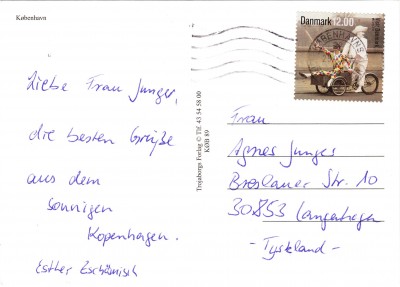 København
Liebe Frau Junges,
die besten Grüße
aus dem
sonnigen
Kopenhagen.
Esther
Trojaborgs Forlag © Tlf. 43 54 58 00
KØB 89
Danmark 12.00
KØBENHAVNS
Frau
Agnes Junges
Breslauer Str. 10
30853 Langenhagen
- Tyskland -